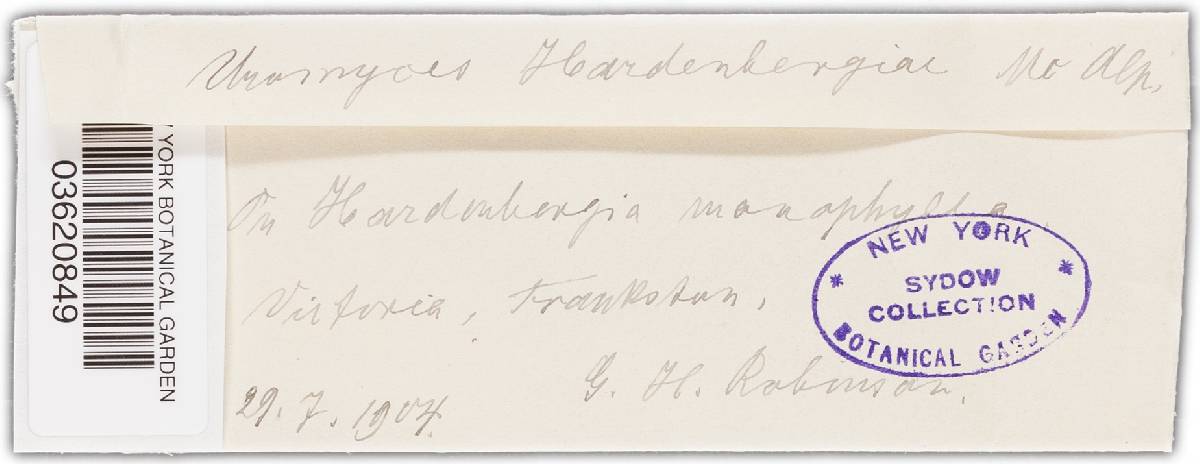 Uromyces Hardenbergiae Mc Alp.
On Hardenbergia monophylla
Victoria, Frankston.
29.7.1904.
G. H. Robinson.
NEW YORK
SYDOW
COLLECTION
BOTANICAL GARDEN
YORK BOTANICAL GARDEN
03620849